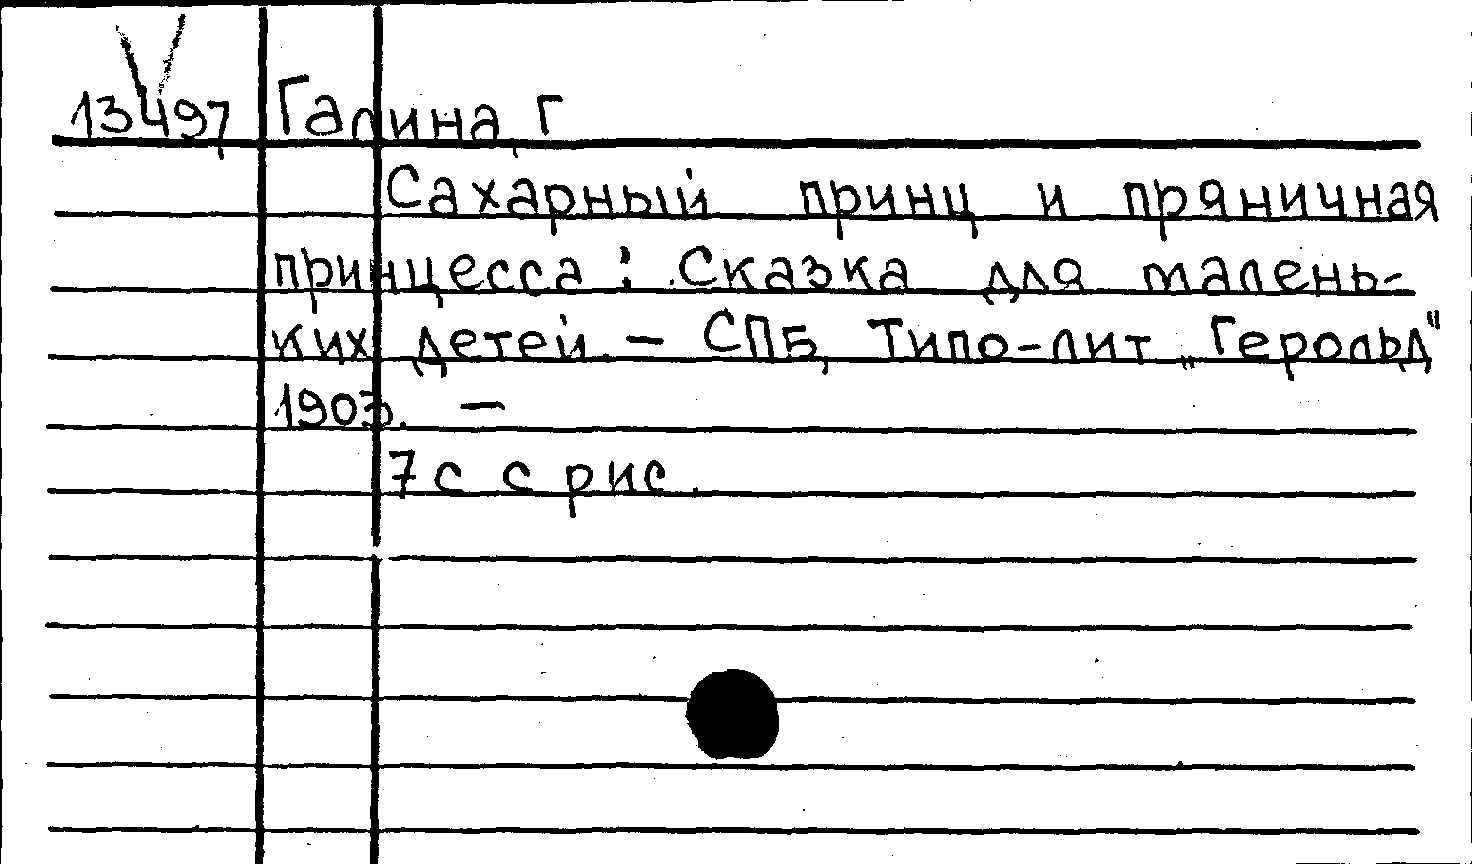 13497 Галина, Г
Сахарный принц и пряничная
принцесса: Сказка для малень-
ких детей. - СПБ, Типо-лит „Герольд"
1903. -
7с с рис.